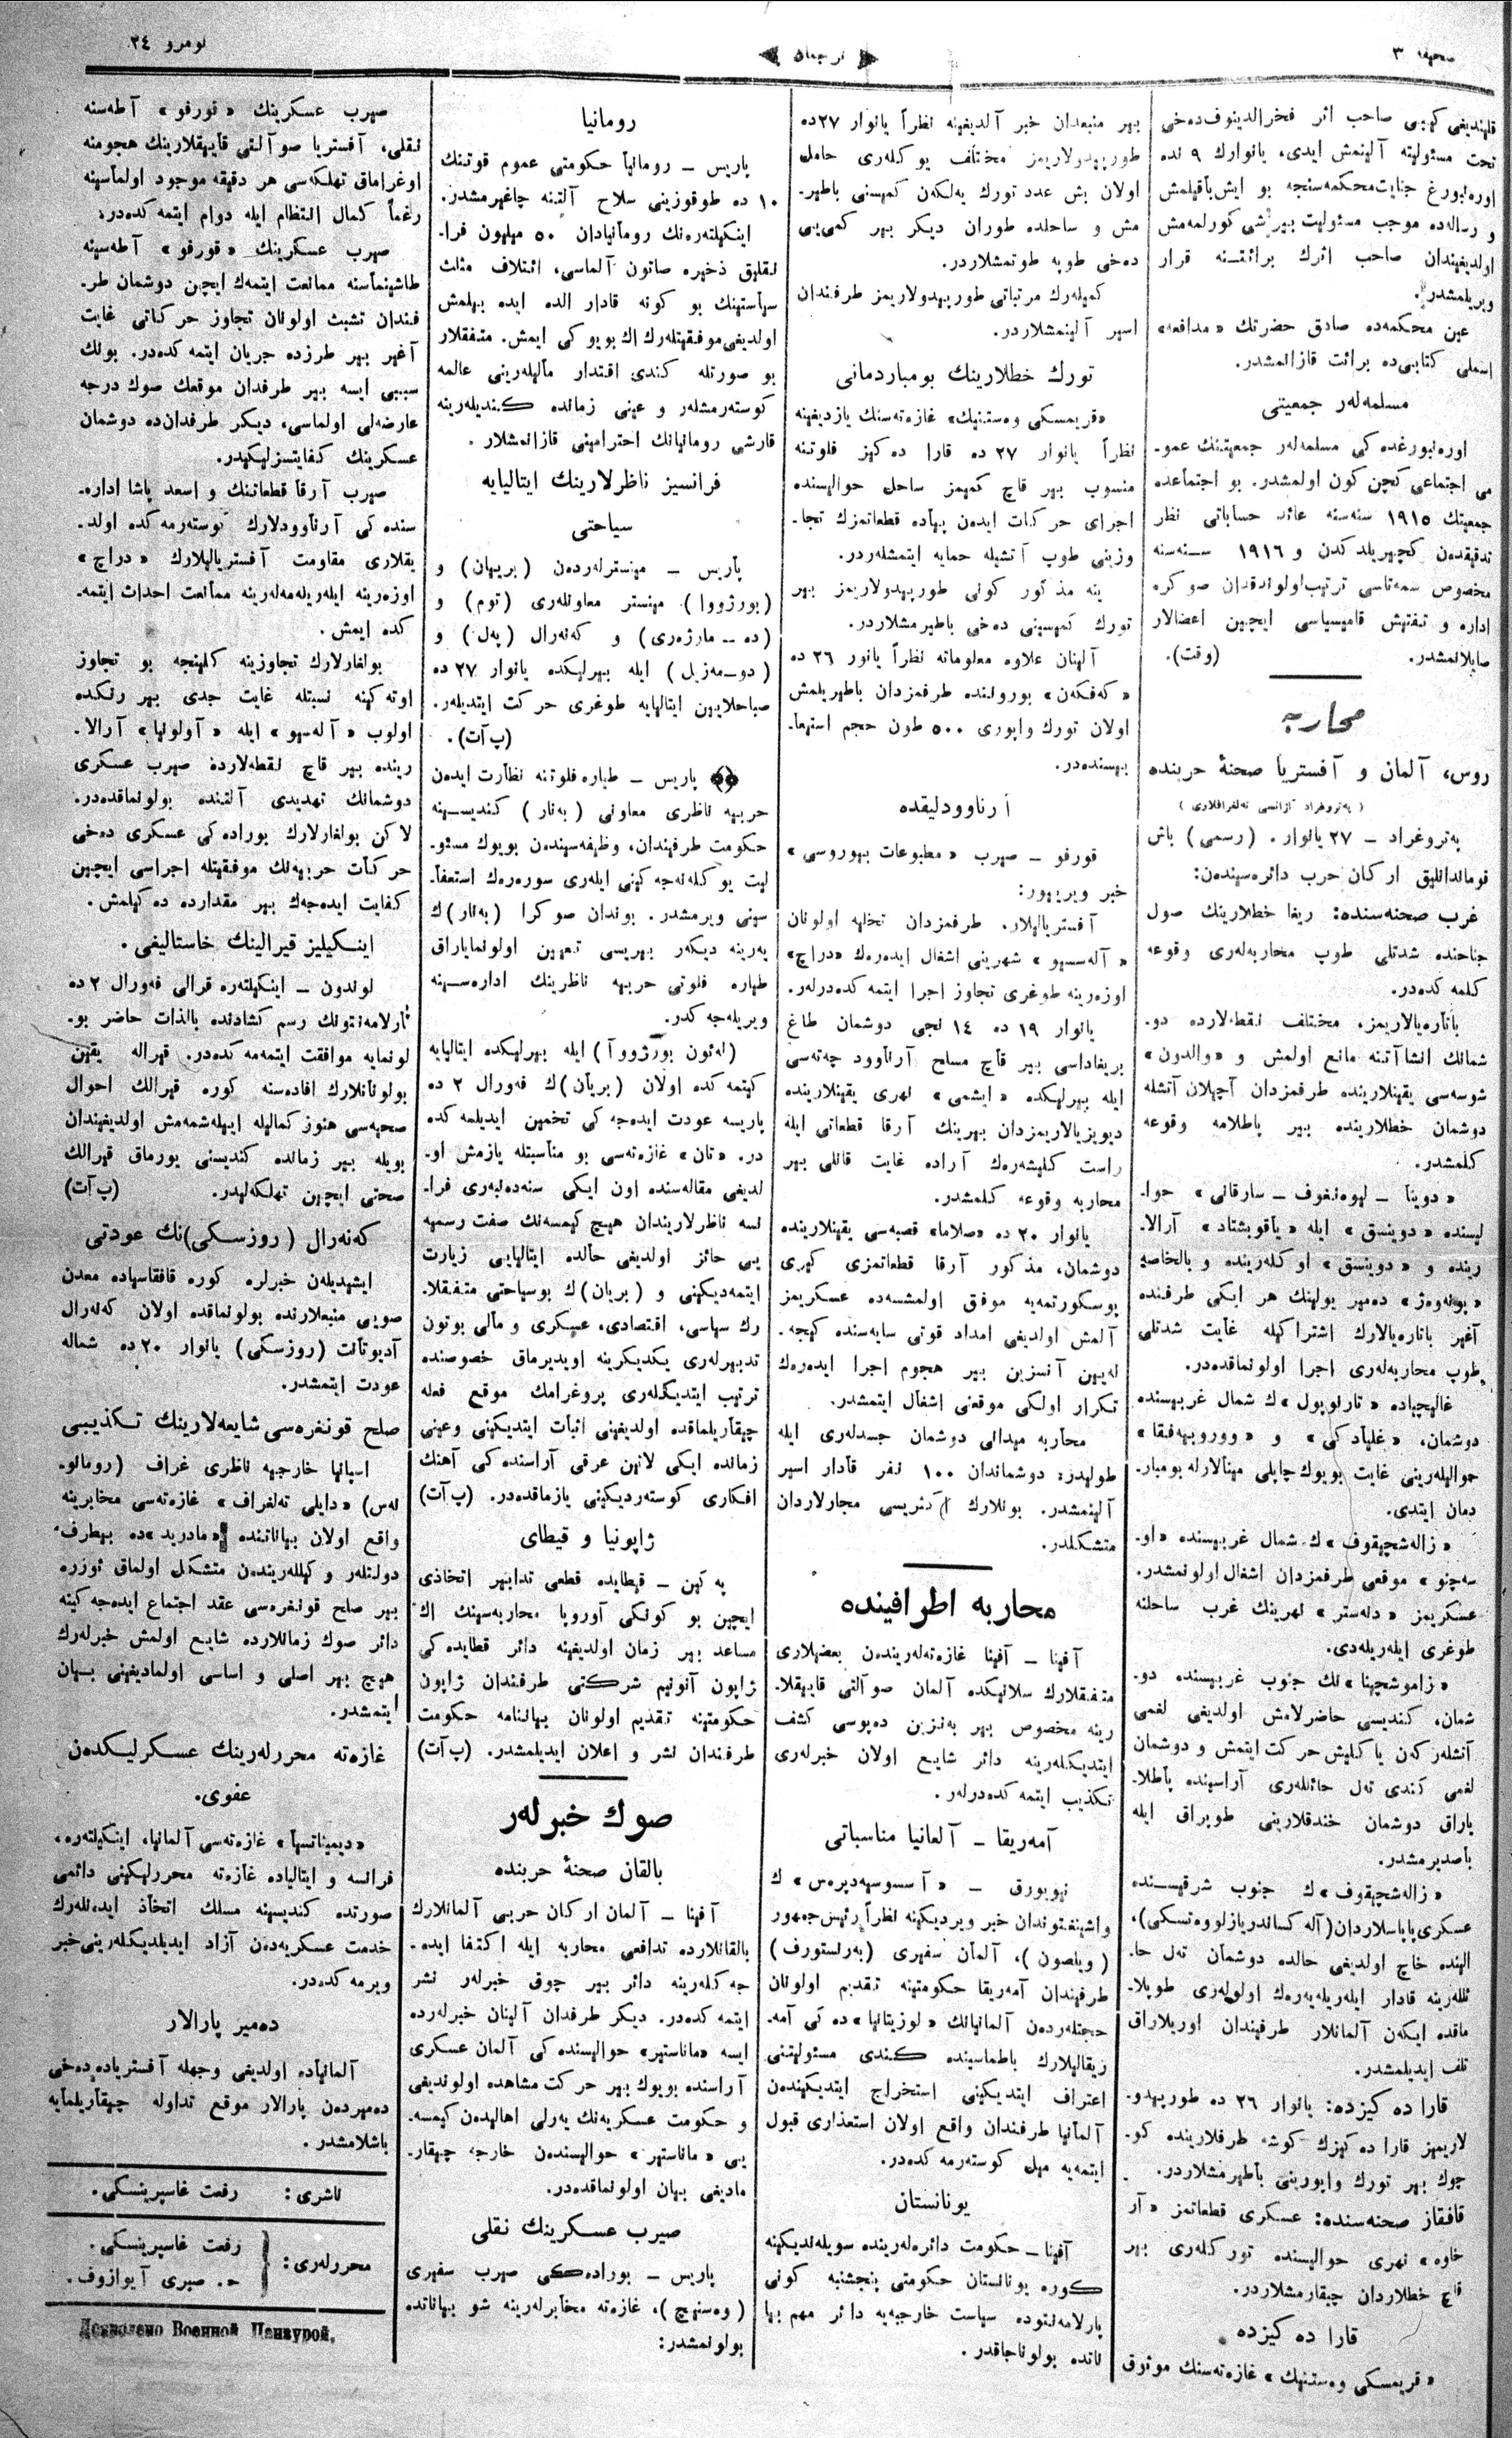 صحیفه ۳
ترجمان
نومرو ۲٤
قلیندیغی کیبی صاحب اثر فخرالدینوف دەخی
تحت مسئولیته آلینمش ایدی، یانوارك ۹ نده
اورەنبورغ جنایت محکمەسنجه بو ایش باقیلمش
و رسالەده موجب مسئولیت بیر شی کورلمەمش
اولدیغیندان صاحب اثرك برائتـنه قرار
ویریلمشدر.
عین محکمەده صادق حضرتك «مدافعه»
اسملی کتابی‌ده برائت قازانمشدر.
مسلمەلەر جمعیتی
اورەنبورغده کی مسلمەلەر جمعیتنك عمو-
می اجتماعی کچن کون اولمشدر. بو اجتماعده
جمعیتك ۱۹۱٥ سنەسنه عائد حساباتی نظر
تدقیقدن کچیریلدکدن و ۱۹۱٦ سـنەسنه
مخصوص سمەتاسی ترتیب اولوندقدان صوکره
اداره و تفتیش قامیسیاسی ایچین اعضالار
صایلانمشدر. (وقت).
محاربه
روس، آلمان و آفستریا صحنهٔ حربنده
(پەتروغراد آژانسی تەلغرافلاری)
پەتروغراد – ۲۷ یانوار. (رسمی) باش
قوماندانلیق ارکان حرب دائرەسیندن:
غرب صحنەسنده: ریغا خطلارینك صول
جناحنده شدتلی طوپ محاربەلەری وقوعه
کلمەکدەدر.
باتارەیالاریمز، مختلف نقطەلارده دو-
شمانك انشاآتنه مانع اولمش و «والدون»
شوسەسی یقینلارینده طرفمزدان آچیلان آتشله
دوشمان خطلارینده بیر پاطلامه وقوعه
کلمشدر.
«دوینا – لیوەنغوف – سارقانی» حوا-
لیسنده «دوینسق» ایله «یاقوبشتاد» آرالا-
رینده و «دوینسق» اوکلەرینده و بالخاصه
«پونەوەژ» دەمیر یولینك هر ایکی طرفنده
آغیر باتارەیالارك اشتراکیله غایت شدتلی
طوپ محاربەلەری اجرا اولونماقدەدر.
غالیچیاده «تارنوپول»ك شمال غربیسنده
دوشمان، «غلیادکی» و «وورویبەفقا»
حوالیلەرینی غایت بویوك چاپلی مینالارله بومبار-
دمان ایتدی.
«زالەشچیقوف»ك شمال غربیسنده «او-
سەچنو» موقعی طرفمزدان اشغال اولونمشدر.
عسکریمز «دنەستر» نهرینك غرب ساحلنه
طوغری ایلەریلەدی.
«زاموشچینا»نك جنوب غربیسنده دو-
شمان، کندیسی حاضرلامش اولدیغی لغمی
آتشلەرکەن یاکلیش حرکت ایتمش و دوشمان
لغمی کندی تەل حائللەری آراسینده پاطلا-
یاراق دوشمان خندقلارینی طوپراق ایله
باصدیرمشدر.
«زالەشچیقوف»ك جنوب شرقیـسنده
عسکری پاپاسلاردان (آلەکساندر یازلووەتسکی)،
الینده خاچ اولدیغی حالده دوشمان تەل حا-
ئللەرینه قادار ایلەریلەیەرەك اولولەری طوپلا-
ماقده ایکەن آلمانلار طرفیندان اوریلاراق
تلف ایدیلمشدر.
قارا دەکیزده: یانوار ۲٦ ده طورپیدو-
لاریمز قارا دەکیزك کوشه طرفلارینده کو-
چوك بیر تورك واپورینی باطیرمشلاردر.
قافقاز صحنەسنده: عسکری قطعاتمز «آر
خاوه» نهری حوالیسنده تورکلەری بیر
قاچ خطلاردان چیقارمشلاردر.
قارا دەکیزده
«قریمسکی وەستنیك» غازەتەسنك موثوق
بیر منبعدان خبر آلدیغینه نظراً یانوار ۲۷ده
طورپیدولاریمز مختلف یوکلەری حامل
اولان بش عدد تورك یەلکەن کمیسنی باطیر-
مش و ساحلده طوران دیکر بیر کمی‌یی
دەخی طوپه طوتمشلاردر.
کمیلەرك مرتباتی طورپیدولاریمز طرفندان
اسیر آلینمشلاردر.
تورك خطلارینك بومباردمانی
«قریمسکی وەستنیك» غازەتەسنك یازدیغینه
نظراً یانوار ۲۷ ده قارا دەکیز فلوتنه
منسوب بیر قاچ کمیمز ساحل حوالیسنده
اجرای حرکات ایدەن پیاده قطعاتمزك تجا-
وزینی طوپ آتشیله حمایه ایتمشلەردر.
ینه مذکور کونی طورپیدولاریمز بیر
تورك کمیسینی دەخی باطیرمشلاردر.
آلینان علاوه معلوماته نظراً یانور ۲٦ ده
«کەفکەن» بوروننده طرفمزدان باطیریلمش
اولان تورك واپوری ٥۰۰ طون حجم استیعا-
بیسندەدر.
آرناوودلیقده
قورفو – صیرب «مطبوعات بیوروسی»
خبر ویرییور:
آفستریالیلار، طرفمزدان تخلیه اولونان
«آلەسسیو» شهرینی اشغال ایدەرەك «دراچ»
اوزەرینه طوغری تجاوز اجرا ایتمەکدەدرلەر.
یانوار ۱۹ ده ۱٤ نجی دوشمان طاغ
بریغاداسی بیر قاچ مسلح آرناوود چەتەسی
ایله بیرلیکده «ایشمی» نهری یقینلارینده
دیویزیالاریمزدان بیرینك آرقا قطعاتی ایله
راست کلیشەرەك آراده غایت قانلی بیر
محاربه وقوعه کلمشدر.
یانوار ۲۰ ده «صلاما» قصبەسی یقینلارینده
دوشمان، مذکور آرقا قطعاتمزی کیری
پوسکورتمەیه موفق اولمشسەده عسکریمز
آلمش اولدیغی امداد قوتی سایەسنده کیجە-
لەیین آنسزین بیر هجوم اجرا ایدەرەك
تکرار اولکی موقعنی اشغال ایتمشدر.
محاربه میدانی دوشمان جسدلەری ایله
طولیدر؛ دوشماندان ۱۰۰ نفر قادار اسیر
آلینمشدر. بونلارك اکثریسی مجارلاردان
متشکلدر.
محاربه اطرافینده
آفینا – آفینا غازەتەلەریندن بعضیلاری
متفقلارك سلانیکده آلمان صوآلتی قاییقلا-
رینه مخصوص بیر بەنزین دەپوسی کشف
ایتدیکلەرینه دائر شایع اولان خبرلەری
تکذیب ایتمەکدەدرلەر.
آمەریقا – آلمانیا مناسباتی
نیویورق – «آسسوسیەدپرەس»ك
واشینغتوندان خبر ویردیکینه نظراً رئیس جمهور
(ویلصون)، آلمان سفیری (بەرنستورف)
طرفیندان آمەریقا حکومتینه تقدیم اولونان
حجتلەردەن آلمانیانك «لوزیتانیا»دەکی آمە-
ریقالیلارك باطماسینده کـندی مسئولیتنی
اعتراف ایتدیکینی استخراج ایتدیکیندن
آلمانیا طرفندان واقع اولان استعذاری قبول
ایتمەیه میل کوستەرمەکدەدر.
یونانستان
آفینا – حکومت دائرەلەرینده سویلەندیکینه
کوره یونانستان حکومتی پنجشنبه کونی
پارلامەنتوده سیاست خارجیەیه دائر مهم بیا
ناتده بولوناجاقدر.
رومانیا
پاریس – رومانیا حکومتی عموم قوتنك
۱۰ ده طوقوزینی سلاح آلتنه چاغیرمشدر.
اینکیلتەرەنك رومانیادان ٥۰ میلیون فرا-
نقلیق ذخیره صاتون آلماسی، ائتلاف مثلث
سیاستینك بو کونه قادار الده ایده بیلمش
اولدیغی موفقیتلەرك اك بویوکی ایمش. متفقلار
بو صورتله کندی اقتدار مالیلەرینی عالمه
کوستەرمشلەر و عینی زمانده کـندیلەرینه
قارشی رومانیانك احترامینی قازانمشلار.
فرانسیز ناظرلارینك ایتالیایه
سیاحتی
پاریس – مینسترلەردەن (بریهان) و
(بورژووا) مینستر معاونلەری (توم) و
(ده – مارژەری) و کەنەرال (پەل) و
(دو-مەزیل) ایله بیرلیکده یانوار ۲۷ ده
صباحلایین ایتالیایه طوغری حرکت ایتدیلەر.
(پ آت).
پاریس – طیاره فلوتنه نظارت ایدەن
حربیه ناظری معاونی (بەنار) کندیـسینه
حکومت طرفیندان، وظیفەسیندن بویوك مسئو-
لیت یوکلەنەجەکینی ایلەری سورەرەك استعفا-
سینی ویرمشدر. بوندان صوکرا (بەنار)ك
یەرینه دیکەر بیریسی تعیین اولونمایاراق
طیاره فلوتی حربیه ناظرینك ادارەسـینه
ویریلەجەکدر.
(لەئون بورژووآ) ایله بیرلیکده ایتالیایه
کیتمەکده اولان (بریان)ك فەورال ۲ ده
پاریسه عودت ایدەجەکی تخمین ایدیلمەکده
در. «تان» غازەتەسی بو مناسبتله یازمش او-
لدیغی مقالەسنده اون ایکی سنەدەنبەری فرا-
نسه ناظرلاریندان هیچ کیمسەنك صفت رسمیه
یی حائز اولدیغی حالده ایتالیایی زیارت
ایتمەدیکینی و (بریان)ك بوسیاحتی متفقلا-
رك سیاسی، اقتصادی، عسکری و مالی بوتون
تدبیرلەری یکدیکرینه اویدیرماق خصوصنده
ترتیب ایتدیکلەری پروغرامك موقع فعله
چیقاریلماقده اولدیغینی اثبات ایتدیکینی وعینی
زمانده ایکی لاتین عرقی آراسنده کی آهنك
افکاری کوستەردیکینی یازماقدەدر. (پ آت)
ژاپونیا و قیطای
پەکین – قیطایده قطعی تدابیر اتخاذی
ایچین بو کونکی آوروپا محاربەسینك اك
مساعد بیر زمان اولدیغینه دائر قطایدەکی
ژاپون آنونیم شرکتی طرفندان ژاپون
حکومتینه تقدیم اولونان بیاننامه حکومت
طرفندان نشر و اعلان ایدیلمشدر. (پ آت)
صوك خبرلەر
بالقان صحنهٔ حربنده
آفینا – آلمان ارکان حربی آلمانلارك
بالقانلارده تدافعی محاربه ایله اکتفا ایدە-
جەکلەرینه دائر بیر چوق خبرلەر نشر
ایتمەکدەدر. دیکر طرفدان آلینان خبرلەرده
ایسه «ماناستیر» حوالیسنده کی آلمان عسکری
آراسنده بویوك بیر حرکت مشاهده اولوندیغی
و حکومت عسکریەنك یەرلی اهالیدن کیمسە-
یی «ماناستیر» حوالیسندن خارجه چیقار-
مادیغی بیان اولونماقدەدر.
صیرب عسکرینك نقلی
پاریس – بورادەکی صیرب سفیری
(وەسنیچ)، غازەته مخابرلەرینه شو بیاناتده
بولونمشدر:
صیرب عسکرینك «قورفو» آطەسنه
نقلی، آفستریا صوآلتی قاییقلارینك هجومنه
اوغراماق تهلکەسی هر دقیقه موجود اولماسینه
رغماً کمال انتظام ایله دوام ایتمەکدەدر.
صیرب عسکرینك «قورفو» آطەسینه
طاشینماسنه ممانعت ایتمەك ایچین دوشمان طر-
فندان تشبث اولونان تجاوز حرکاتی غایت
آغیر بیر طرزده جریان ایتمەکدەدر. بونك
سببی ایسه بیر طرفدان موقعك صوك درجه
عارضەلی اولماسی، دیکر طرفدان‌ده دوشمان
عسکرینك کفایتسزلیکیدر.
صیرب آرقا قطعاتنك و اسعد پاشا اداره-
سنده کی آرناوودلارك کوستەرمەکده اولد-
یقلاری مقاومت آفستریالیلارك «دراچ»
اوزەرینه ایلەریلەمەلەرینه ممانعت احداث ایتمە-
کده ایمش.
بولغارلارك تجاوزینه کلینجه بو تجاوز
اوتەکینه نسبتله غایت جدی بیر رنکده
اولوب «آلەسیو» ایله «آولونیا» آرالا-
رینده بیر قاچ نقطەلارده صیرب عسکری
دوشمانك تهدیدی آلتنده بولونماقدەدر.
لاکن بولغارلارك بورادەکی عسکری دەخی
حرکات حربیەنك موفقیتله اجراسی ایچین
کفایت ایدەجەك بیر مقدارده دەکیلمش.
اینـکیلیز قیرالینك خاستالیغی.
لوندون – اینکیلتەره قرالی فەورال ۲ ده
پارلامەنتونك رسم کشادنده بالذات حاضر بو-
لونمایه موافقت ایتمەمەکدەدر. قیراله یقین
بولونانلارك افادەسنه کوره قیرالك احوال
صحیەسی هنوز کمالیله ایییلەشمەمش اولدیغیندان
بویله بیر زمانده کندیسنی یورماق قیرالك
صحتی ایچین تهلکەلیدر. (پ آت)
کەنەرال (روزسکی)نك عودتی
ایشیدیلەن خبرلره کوره قافقاسیاده معدن
صویی منبعلارنده بولونماقده اولان کەنەرال
آدیوتانت (روزسکی) یانوار ۲۰ ده شماله
عودت ایتمشدر.
صلح قونغرەسی شایعەلارینك تـکذیبی
اسپانیا خارجیه ناظری غراف (رومانو-
نەس) «دایلی تەلغراف» غازەتەسی مخابرینه
واقع اولان بیاناتنده «مادرید»ده بیطرف
دولتلەر وکیللەریندەن متشکل اولماق ئوزره
بیر صلح قونغرەسی عقد اجتماع ایدەجەکینه
دائر صوك زمانلارده شایع اولمش خبرلەرك
هیچ بیر اصلی و اساسی اولمادیغینی بـیان
ایتمشدر.
غازەته محررلەرینك عسکرلیـکدەن
عفوی.
«دیمیناتسیا» غازەتەسی آلمانیا، اینکیلتەره،
فرانسه و ایتالیاده غازەته محررلیکینی دائمی
صورتده کندیسینه مسلك اتخاذ ایدەنلەرك
خدمت عسکریەدەن آزاد ایدیلدیکلەرینی خبر
ویرمەکدەدر.
دەمیر پارالار
آلمانیاده اولدیغی وجهله آفستریاده دەخی
دەمیردەن پارالار موقع تداوله چیقاریلمایه
باشلامشدر.
ناشری: رفعت غاسپرینسکی.
محررلەری: رفعت غاسپرینسکی.
ح. صبری آیوازوف.
Дозволено Военной Цензурой.